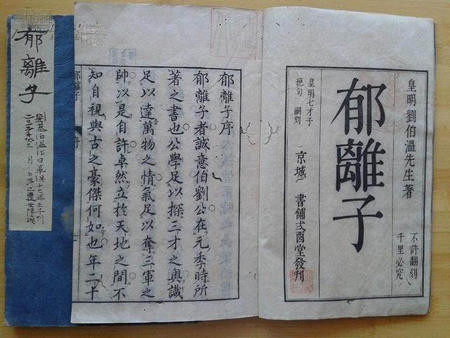 皇明劉伯温先生著
郁離子
不許翻刻
千里必究
皇明七才子
京城 書鋪式酉堂發刊
郁離子序
郁離子者誠意伯劉公在元季時所
著之書也公學足以探三才之奧識
足以達萬物之情氣足以奪三軍之
帥以是自許卓然立於天地之間不
知自視與古之豪傑何如也年二十
郁離子